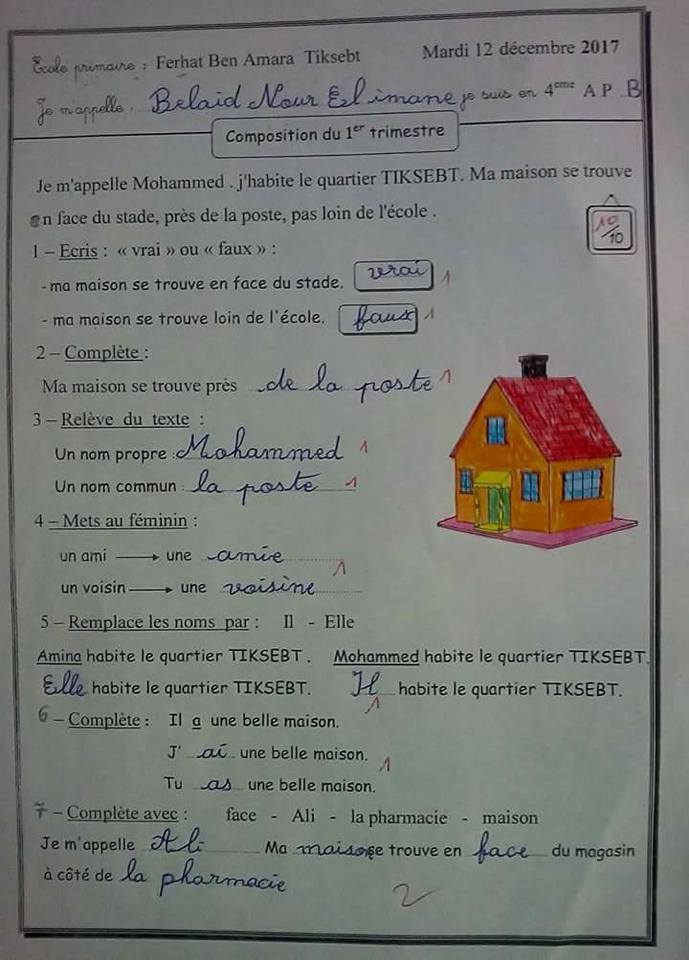 Ecole primaire : Ferhat Ben Amara Tiksebt Mardi 12 décembre 2017
Je m'appelle : Belaid Nour El imane je suis en 4eme A P B
Composition du 1er trimestre
Je m'appelle Mohammed . j'habite le quartier TIKSEBT. Ma maison se trouve
en face du stade, près de la poste, pas loin de l'école .
10/10
1 – Ecris : « vrai » ou « faux » :
- ma maison se trouve en face du stade. vrai 1
- ma maison se trouve loin de l'école. faux 1
2 – Complète :
Ma maison se trouve près de la poste 1
3 – Relève du texte :
Un nom propre : Mohammed 1
Un nom commun : la poste 1
4 – Mets au féminin :
un ami → une amie
1
un voisin → une voisine
5 – Remplace les noms par : Il - Elle
Amina habite le quartier TIKSEBT . Mohammed habite le quartier TIKSEBT.
Elle habite le quartier TIKSEBT. Il habite le quartier TIKSEBT.
1
6 – Complète : Il a une belle maison.
J' ai une belle maison. 1
Tu as une belle maison.
7 – Complète avec : face - Ali - la pharmacie - maison
Je m'appelle Ali Ma maison se trouve en face du magasin
à côté de la pharmacie
2